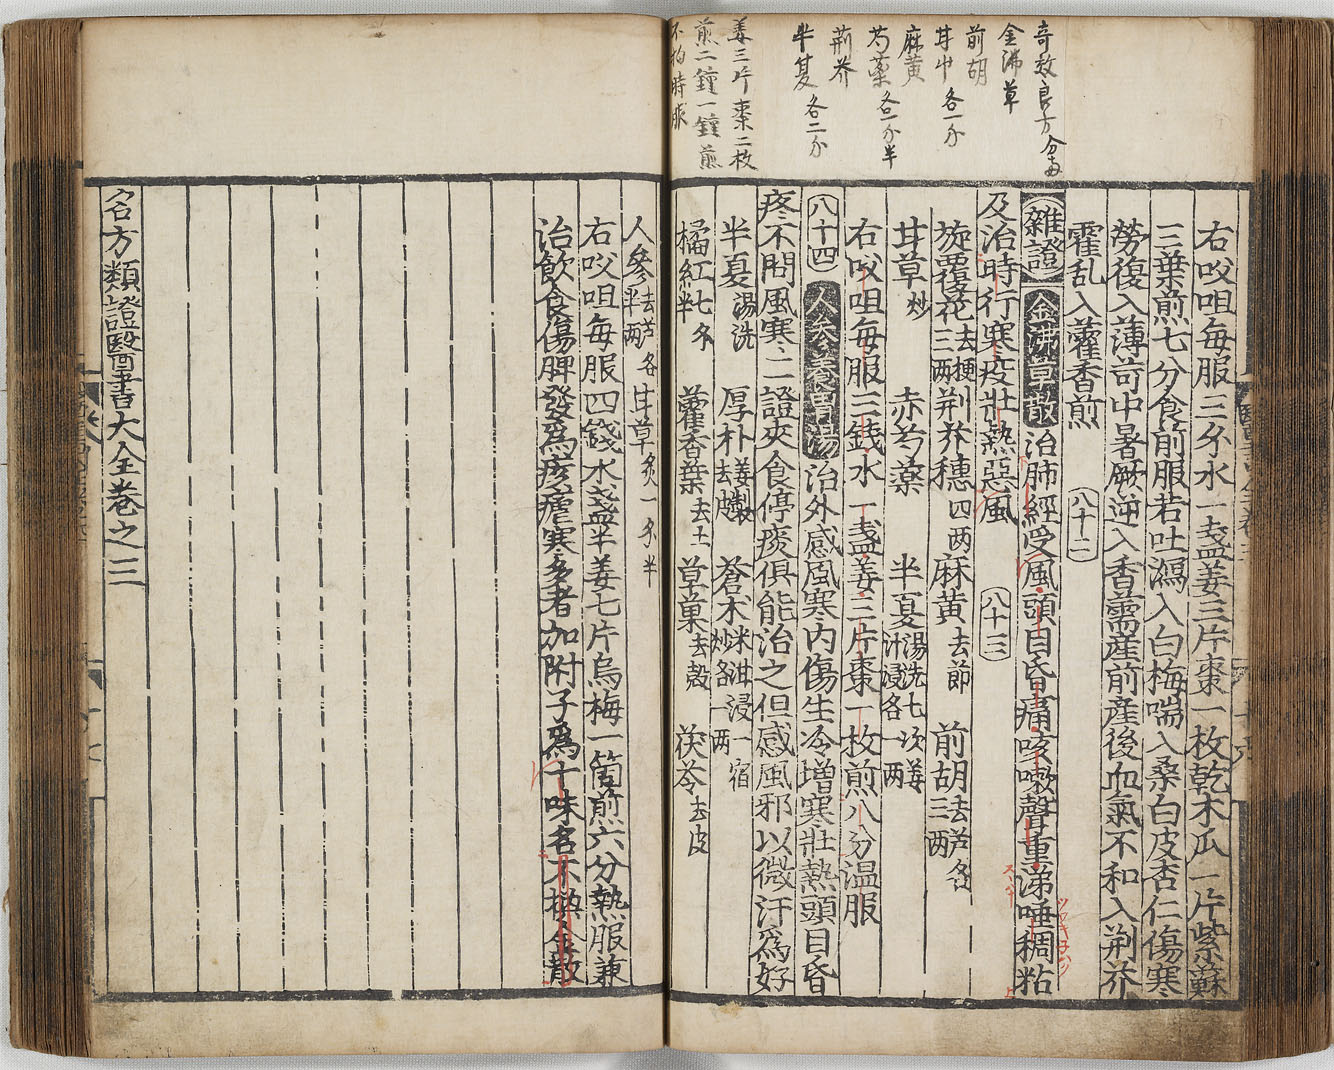 奇效良方分量
金沸草
前胡
甘草 各一分
麻黄
芍藥 各一分半
荊芥
半夏 各二分
姜三片棗二枚
煎二鐘一鐘煎
不拘時服
右㕮咀每服三錢水一盞姜三片棗一枚乾木瓜一片紫蘇
三葉煎七分食前服若吐瀉入白梅喘入桑白皮杏仁傷寒
勞復入薄苛中暑厥逆入香薷産前産後血氣不和入荆芥
霍乱入藿香煎 八十二
雜證 金沸草散 治肺經受風頭目昏痛咳嗽聲重涕唾稠粘
及治時行寒疫壮熱惡風 八十三
旋覆花去梗三两 荆芥穗四两 麻黄去節 前胡去芦各三两
甘草炒 赤芍藥 半夏湯洗七次姜汁浸各一两
右㕮咀每服三錢水一盞姜三片棗一枚煎八分温服
八十四 人参養胃湯 治外感風寒内傷生冷增寒壮熱頭目昏
疼不問風寒二證夾食停痰俱能治之但感風邪以微汗爲好
半夏湯洗 厚朴去皮姜製 蒼术米泔浸一宿炒各一两
橘紅七錢半 藿香葉去土 草菓去殼 茯苓去皮
人參去芦各半两 甘草炙一錢半
右㕮咀每服四錢水盞半姜七片烏梅一箇煎六分熱服兼
治飲食傷脾發爲痎瘧寒多者加附子爲十味名不換金散
名方類證醫書大全卷之三